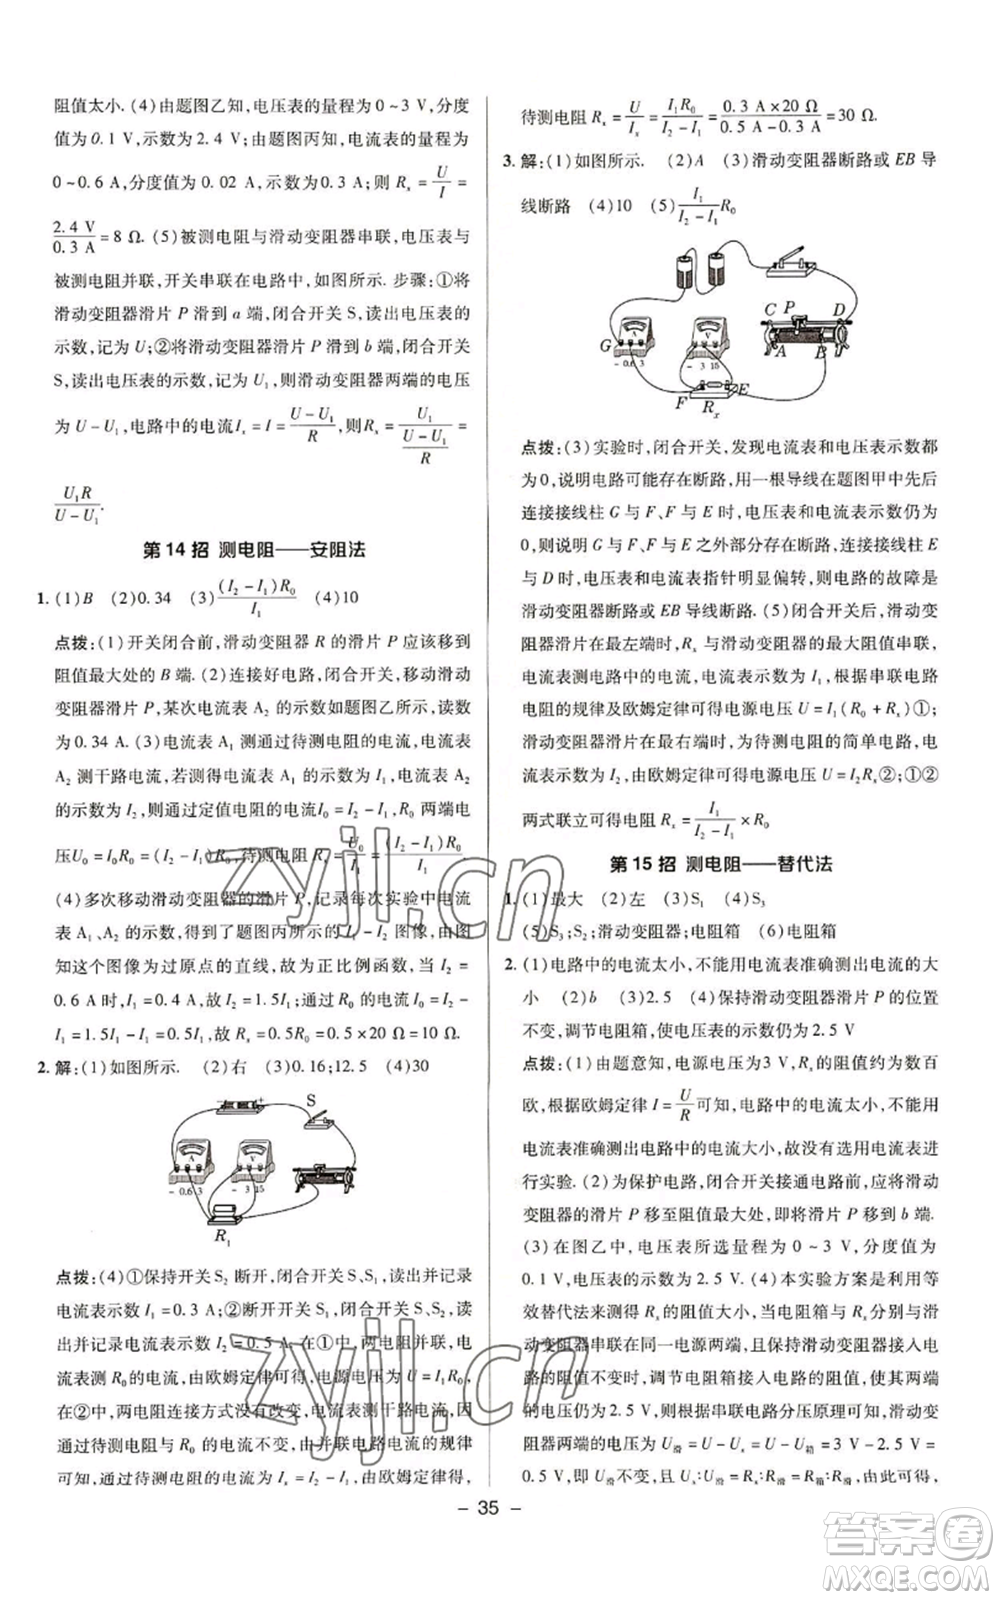 阻值太小. (4)由题图乙知,电压表的量程为 0～3 V,分度
值为 0.1 V,示数为 2.4 V;由题图丙知,电流表的量程为
0～0.6 A,分度值为 0.02 A,示数为0.3 A;则 Rₓ = U/I =
2.4 V/0.3 A = 8 Ω. (5)被测电阻与滑动变阻器串联,电压表与
被测电阻并联,开关串联在电路中,如图所示. 步骤:①将
滑动变阻器滑片 P 滑到 a 端,闭合开关 S,读出电压表的
示数,记为 U;②将滑动变阻器滑片 P 滑到 b 端,闭合开关
S,读出电压表的示数,记为 U₁,则滑动变阻器两端的电压
为 U－U₁,电路中的电流Iₓ = I = (U－U₁)/R,则Rₓ = U₁/((U－U₁)/R) =
U₁R/(U－U₁).
第 14 招 测电阻——安阻法
1. (1)B (2)0.34 (3)(I₂－I₁)R₀/I₁ (4)10
点拨:(1)开关闭合前,滑动变阻器 R 的滑片 P 应该移到
阻值最大处的 B 端. (2)连接好电路,闭合开关,移动滑动
变阻器滑片 P,某次电流表 A₂ 的示数如题图乙所示,读数
为 0.34 A. (3)电流表 A₁ 测通过待测电阻的电流,电流表
A₂ 测干路电流,若测得电流表 A₁ 的示数为 I₁,电流表 A₂
的示数为 I₂,则通过定值电阻的电流I₀ = I₂－I₁,R₀ 两端电
压U₀ = I₀R₀ = (I₂－I₁)R₀,待测电阻Rₓ = U₀/I₁ = (I₂－I₁)R₀/I₁.
(4)多次移动滑动变阻器的滑片 P,记录每次实验中电流
表 A₁、A₂ 的示数,作出题图丙所示的 I₂－I₁ 图像,由图
知这个图像为过原点的直线,为正比例函数,当I₁ = 0.4 A时,I₂ =
0.6 A 时,所以I₂ = 1.5I₁;通过 R₀ 的电流I₀ = I₂－
I₁ = 1.5I₁－I₁ = 0.5I₁,故 Rₓ = 0.5R₀ = 0.5×20 Ω = 10 Ω.
2. 解:(1)如图所示. (2)右 (3)0.16;12.5 (4)30
S
A
V
－ 0.6 3
－ 3 15
R₁
点拨:(4)①保持开关 S₂ 断开,闭合开关 S、S₁,读出并记录
电流表示数 I₁ = 0.3 A;②断开开关 S₁,闭合开关 S、S₂,读
出并记录电流表示数 I₂ = 0.5 A. 在①中,两电阻并联,电
流表测 R₀的电流,由欧姆定律可得,电源电压 U = I₁R₀,
在②中,两电阻连接方式没有改变,电流表测干路电流,
通过待测电阻与 R₀ 的电流不变,由并联电路电流的规律
可知,通过待测电阻的电流为 Iₓ = I₂－I₁,由欧姆定律得,
待测电阻 Rₓ = U/Iₓ = I₁R₀/(I₂－I₁) = (0.3 A×20 Ω)/(0.5 A－0.3 A) = 30 Ω.
3. 解:(1)如图所示. (2)A (3)滑动变阻器断路或 EB 导
线断路 (4)10 (5)I₁/(I₂－I₁) R₀
C P D
G
A
V
A B
－0.6 3
－ 3 15
F
E
Rₓ
点拨:(3)实验时,闭合开关,发现电流表和电压表示数都
为0,说明电路可能存在断路,用一根导线在题图甲中先后
连接接线柱 G 与 F、F 与 E 时,电压表和电流表示数仍为
0,所以 G 与 F、F 与 E 之外部分存在断路,当连接接线柱 E
与 D 时,电压表和电流表指针明显偏转,则电路的故障是
滑动变阻器断路或 EB 导线断路. (5)闭合开关后,滑动变
阻器滑片在最左端时,Rₓ 与滑动变阻器的最大阻值串联,
电流表测电路中的电流,电流表示数为 I₁,根据串联电路
电阻的规律及欧姆定律可得电源电压 U = I₁(R₀ + Rₓ)①;
滑动变阻器滑片在最右端时,为待测电阻的简单电路,电
流表示数为I₂,由欧姆定律可得电源电压 U = I₂Rₓ②;①②
两式联立可得电阻 Rₓ = I₁/(I₂－I₁) × R₀
第 15 招 测电阻——替代法
1. (1)最大 (2)左 (3)S₁ (4)S₃
(5)S₃;S₂;滑动变阻器;电阻箱 (6)电阻箱
2. (1)电路中的电流太小,不能用电流表准确测出电流的大
小 (2)b (3)2.5 (4)保持滑动变阻器滑片 P 的位置
不变,调节电阻箱,使电压表的示数仍为 2.5 V
点拨:(1)由题意知,电源电压为3 V,Rₓ的阻值约为数百
欧,根据欧姆定律 I = U/R 可知,电路中的电流太小,不能用
电流表准确测出电路中的电流大小,故没有选用电流表进
行实验. (2)为保护电路,闭合开关接通电路前,应将滑动
变阻器的滑片 P 移至阻值最大处,即将滑片 P 移到 b 端.
(3)在图乙中,电压表所选的量程为 0～3 V,分度值为
0.1 V,电压表的示数为 2.5 V. (4)本实验方案是利用等
效替代法来测得 Rₓ 的阻值大小,当电阻箱与 Rₓ分别与滑
动变阻器串联在同一电源两端,且保持滑动变阻器接入电
路的阻值不变时,调节电阻箱接入电路的阻值,使其两端
的电压仍为 2.5 V,根据串联电路分压原理可知,滑动变
阻器两端的电压为 U滑 = U－Uₓ = U－U箱 = 3 V－2.5 V =
0.5 V,即U滑不变,且Uₓ = U箱,由分压原理可得,
－ 35 －
zyjl.cn
zyjl.cn
答案圈
MXQE.COM